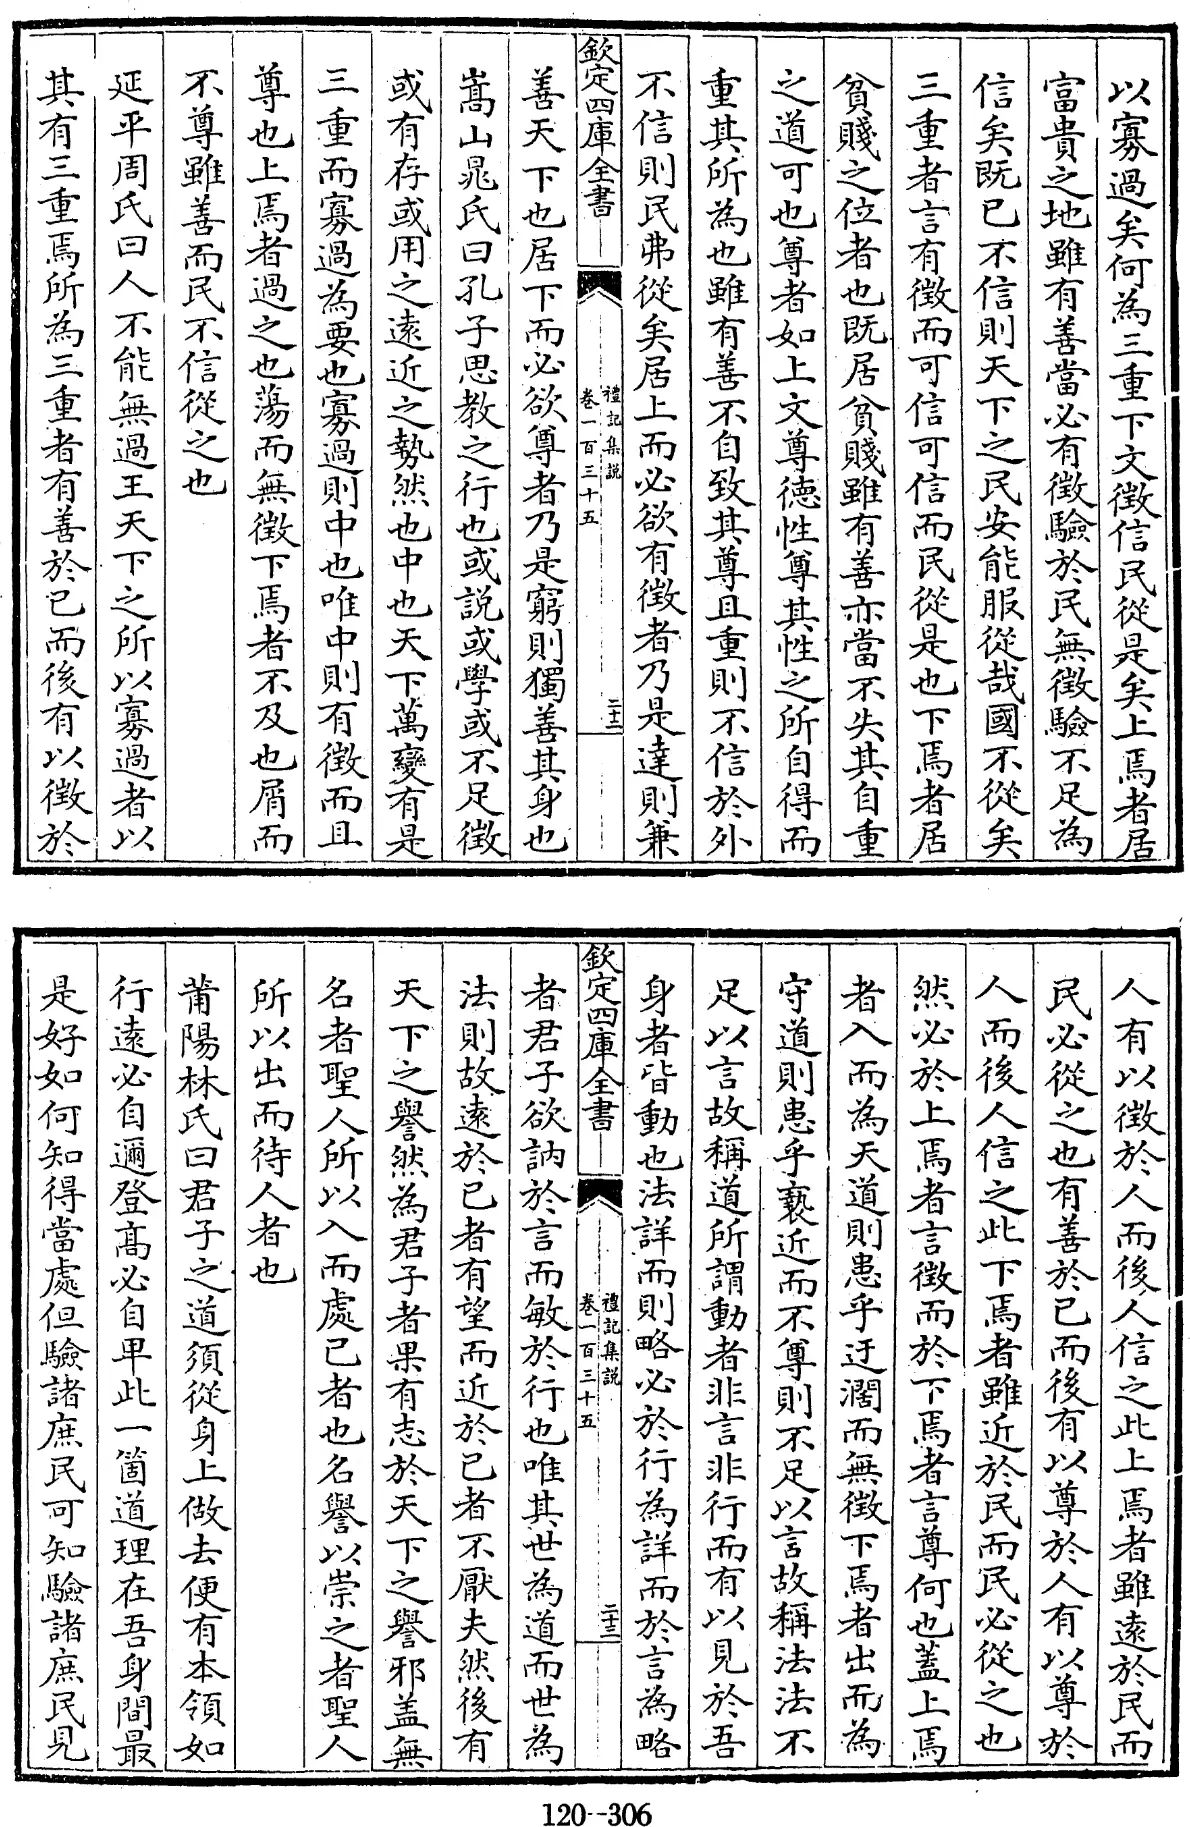 以寡過矣何為三重下文徵信民從是矣上焉者居
富貴之地雖有善當必有徵驗於民無徵驗不足為
信矣既已不信則天下之民安能服從哉國不從矣
三重者言有徵而可信可信而民從是也下焉者居
貧賤之位者也既居貧賤雖有善亦當不失其自重
之道可也尊者如上文尊德性尊其性之所自得而
重其所為也雖有善不自致其尊且重則不信於外
不信則民弗從矣居上而必欲有徵者乃是達則兼
欽定四庫全書
禮記集説
卷一百三十五
二十二
善天下也居下而必欲尊者乃是窮則獨善其身也
嵩山晁氏曰孔子思教之行也或説或學或不足徵
或有存或用之遠近之勢然也中也天下萬變有是
三重而寡過為要也寡過則中也唯中則有徵而且
尊也上焉者過之也蕩而無徵下焉者不及也屑而
不尊雖善而民不信從之也
延平周氏曰人不能無過王天下之所以寡過者以
其有三重焉所為三重者有善於已而後有以徵於
人有以徵於人而後人信之此上焉者雖遠於民而
民必從之也有善於已而後有以尊於人有以尊於
人而後人信之此下焉者雖近於民而民必從之也
然必於上焉者言徵而於下焉者言尊何也蓋上焉
者入而為天道則患乎迂濶而無徵下焉者出而為
守道則患乎褻近而不尊則不足以言故稱法法不
足以言故稱道所謂動者非言非行而有以見於吾
身者皆動也法詳而則略必於行為詳而於言為略
欽定四庫全書
禮記集説
卷一百三十五
二十三
者君子欲訥於言而敏於行也唯其世為道而世為
法則故遠於已者有望而近於已者不厭夫然後有
天下之譽然為君子者果有志於天下之譽邪盖無
名者聖人所以入而處已者也名譽以崇之者聖人
所以出而待人者也
莆陽林氏曰君子之道須從身上做去便有本領如
行遠必自邇登高必自卑此一箇道理在吾身間最
是好如何知得當處但驗諸庶民可知驗諸庶民見
120--306